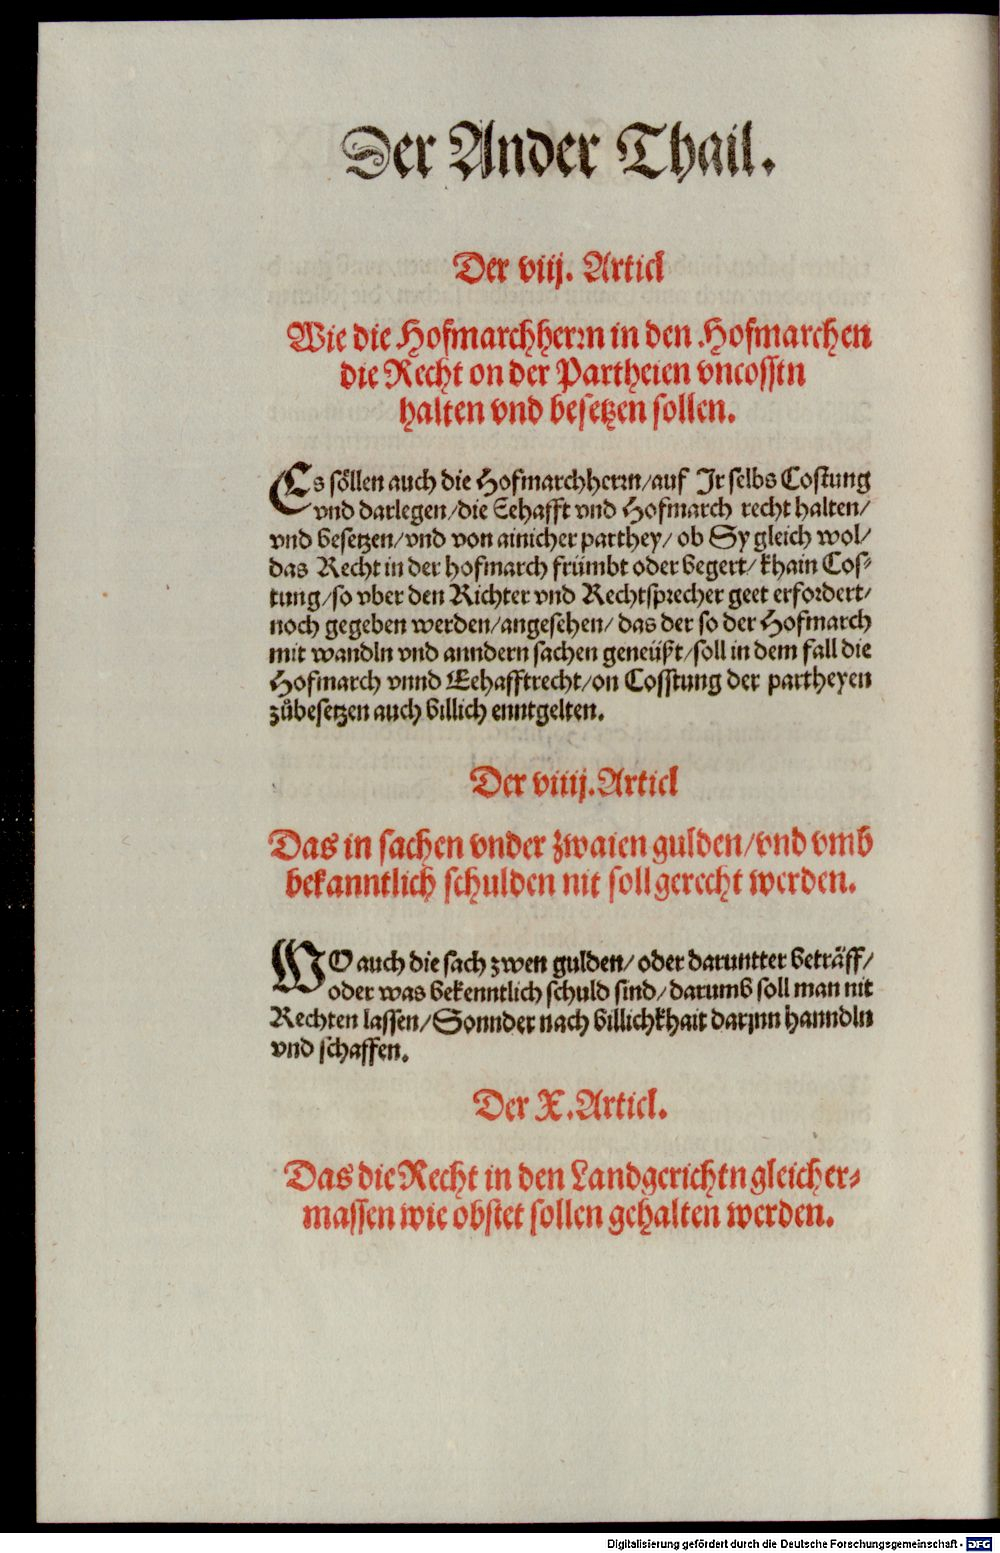 Der Ander Thail.
Der viij. Articl
Wie die Hofmarchherrn in den Hofmarchen
die Recht on der Partheien vncosstn
halten vnd besetzen sollen.
Es söllen auch die Hofmarchherrn/auf Ir selbs Costung
vnd darlegen/die Eehafft vnd Hofmarch recht halten/
vnd besetzen/vnd von ainicher parthey/ ob Sy gleich wol/
das Recht in der hofmarch frümbt oder begert/ khain Cos-
tung/so vber den Richter vnd Rechtsprecher geet erfordert/
noch gegeben werden/angesehen/ das der so der Hofmarch
mit wandln vnd anndern sachen geneüßt/soll in dem fall die
Hofmarch vnnd Eehafftrecht/on Cosstung der partheyen
zůbesetzen auch billich enntgelten.
Der viiij.Articl
Das in sachen vnder zwaien gulden/vnd vmb
bekanntlich schulden nit soll gerecht werden.
WO auch die sach zwen gulden/ oder daruntter beträff/
oder was bekenntlich schuld sind/ darumb soll man nit
Rechten lassen/Sonnder nach billichkhait darjnn hanndln
vnd schaffen.
Der X.Articl.
Das die Recht in den Landgerichtn gleicher-
massen wie obstet sollen gehalten werden.
Digitalisierung gefördert durch die Deutsche Forschungsgemeinschaft - DFG